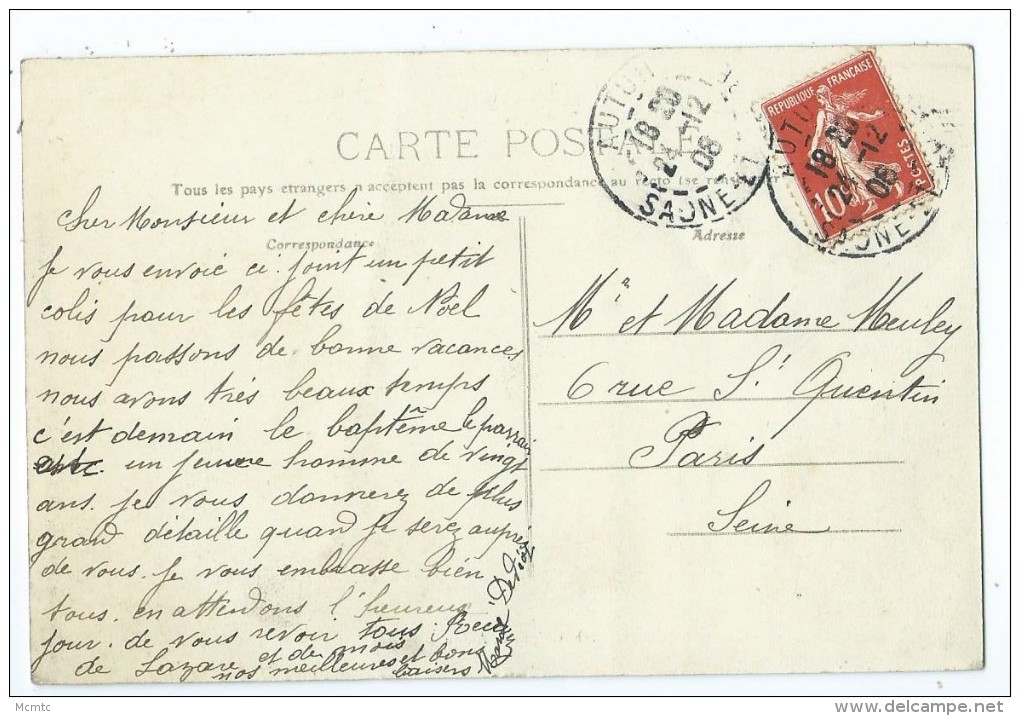 CARTE POSTALE
Tous les pays etrangers n'acceptent pas la correspondance au recto (se renseigner
Correspondance
Cher Monsieur et chère Madame
Je vous envoie ci. joint un petit
colis pour les fêtes de Nöel
nous passons de bonne vacances
nous avons très beaux temps
c'est demain le baptême le parrain
un jeune homme de vingt
ans. Je vous donnerez de plus
grand détaille quand je serez auprès
de vous. Je vous embrasse bien
tous. en attendons l'heureux
jour. de vous revoir tous.
de Lazare et de mois
nos meilleures et bons
baisers
Adresse
Mr et Madame Meuley
6 rue St Quentin
Paris
Seine
AUTUN
18 20
24 -12
08
SAONE
REPUBLIQUE FRANÇAISE
POSTES
10
AUTUN
18 20
24 -12
08
SAONE
Mcmtc
Delcampe.net